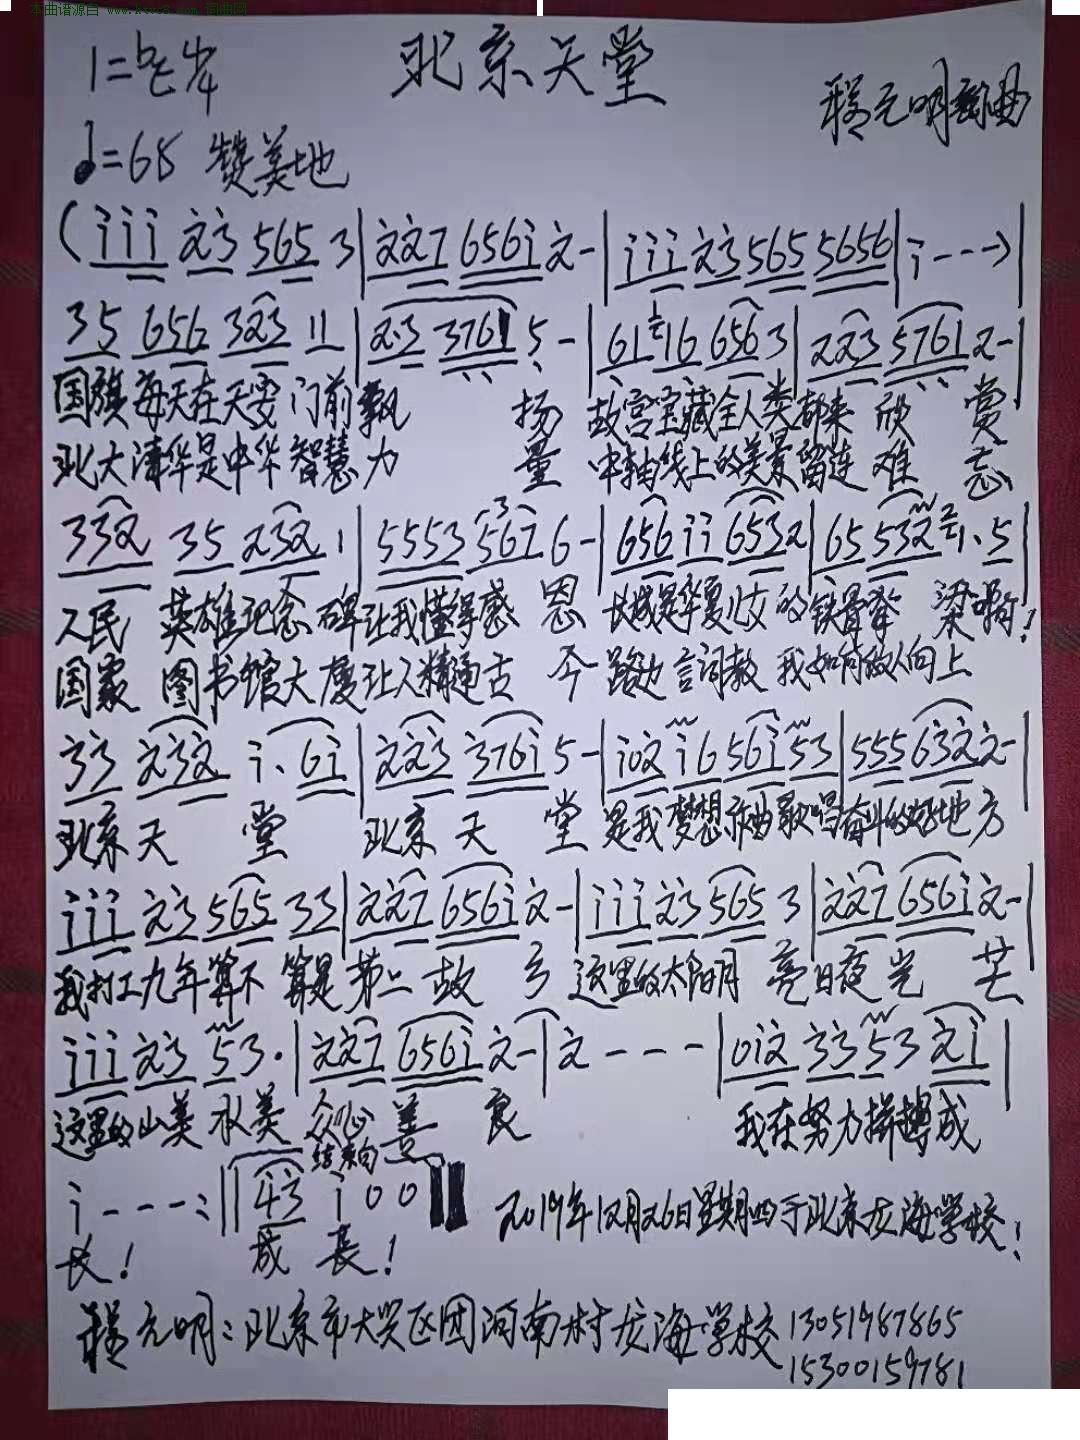 本曲谱源自
1=bE 4/4 北京天堂
程元明词曲
♩=68 赞美地
(i i i 2 3 5 6 5 3 | 2 2 7 6 5 6 i 2 - | i i i 2 3 5 6 5 5 6 5 6 | i - - - ) |
3 5 6 5 6 3 2 3 1 1 | 2·3 3 7 6 1 5 - | 6 1 1 6 6 5 6 3 | 2 2 3 5 7 6 1 2 - |
国旗每天在天安门前飘 扬 故宫宝藏全人类都来欣 赏
北大清华是中华智慧力 量 中轴线上的美景留连难 忘
3 3 2 3 5 2 3 2 1 | 5 5 5 3 5 6 7 6 - | 6 5 6 i i 6 5 3 2 | 6 5 5 3 2 1· 5 |
人民 英雄纪念碑让我懂得感 恩 长城是华夏儿女的铁骨脊 梁啊!
国家 图书馆大厦让人精通古 今 一路 言词教我如何做人向上
3 3 2 3 2 i· 6 i | 2 2 3 3 7 6 i 5 - | i 0 2 i 6 5 6 i 5 3 | 5 5 5 6 3 2 2 - |
北京天 堂 北京天 堂 是我梦想作曲歌唱奋斗的好地方
i i i 2 3 5 6 5 3 3 | 2 2 7 6 5 6 i 2 - | i i i 2 3 5 6 5 3 | 2 2 7 6 5 6 i 2 - |
我打工九年算不算是第二故 乡 这里的太阳月亮日夜光 芒
i i i 2 3 5 3· | 2 2 7 6 5 6 i 2 - | 2 - - - | 0 i 2 3 3 5 3 2 i |
这里的山美水美 众心善 良 我在努力拼搏成
结束句
i - - - :|| 4 3 i 0 0 || 2019年12月26日星期四于北京龙海学校!
长! 成 长!
程元明:北京市大兴区团河南村龙海学校 13051987865
15300159781